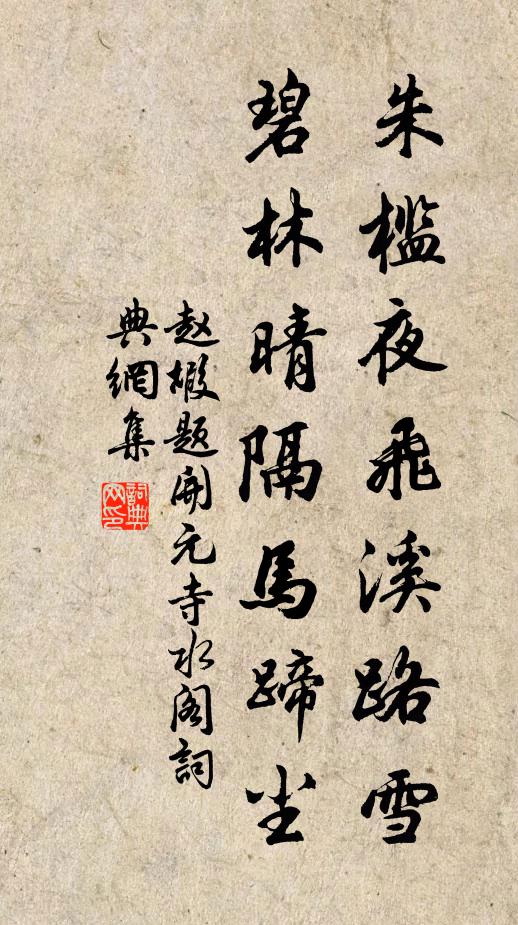 朱槛夜飛溪路雪
碧林晴隔馬蹄尘
赵嘏题開元寺水阁詞
典網集
詞典
网印